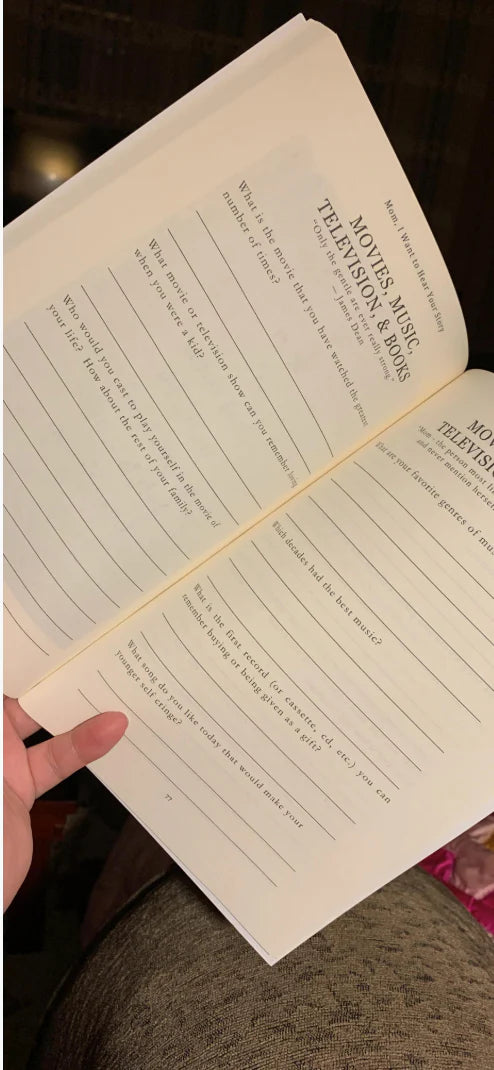 Mom, I Want to Hear Your Story
MOVIES, MUSIC,
TELEVISION, & BOOKS
“Only the gentle are ever really strong.”
— James Dean
What is the movie that you have watched the greatest
number of times?
What movie or television show can you remember loving
when you were a kid?
Who would you cast to play yourself in the movie of
your life? How about the rest of your family?
MO
TELEVISI
"Mom - the person most
and never mention herse
are your favorite genres of mu
Which decades had the best music?
What is the first record (or cassette, cd, etc.) you can
remember buying or being given as a gift?
What song do you like today that would make your
younger self cringe?
77